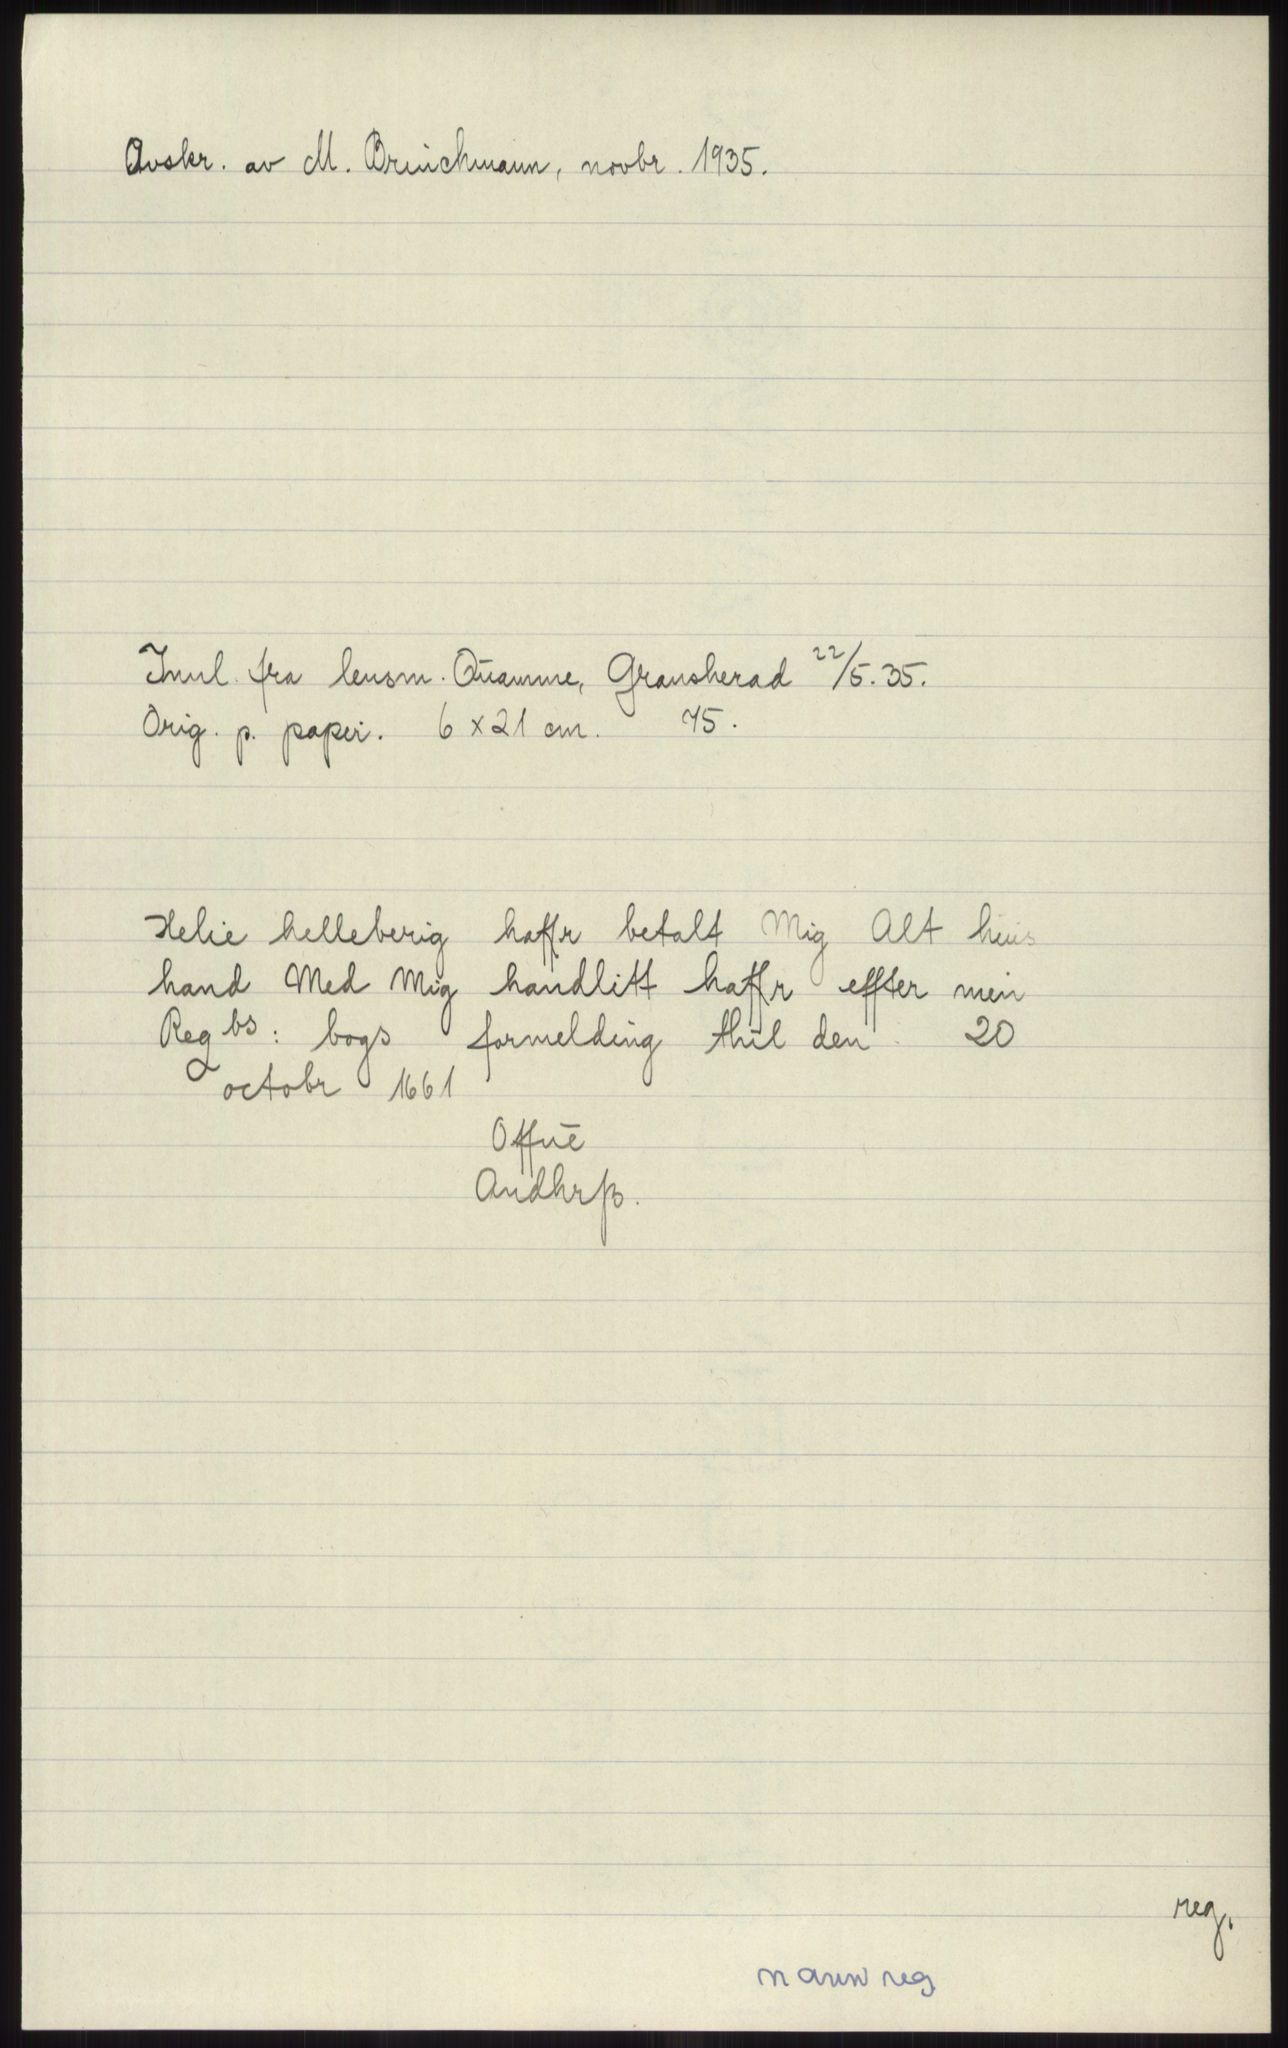 Avskr. av M. Brinchmann, novbr. 1935.
Innl. fra lensm. Quamme, Gransherad 22/5.35.
Orig. p. papir. 6 x 21 cm. 75.
Helie helleberig haffr betalt Mig Alt huis
hand Med Mig handlitt haffr effter min
Reg bs: bogs formelding thil den 20
octobr 1661
Offue
Andhrß.
reg.
navn reg